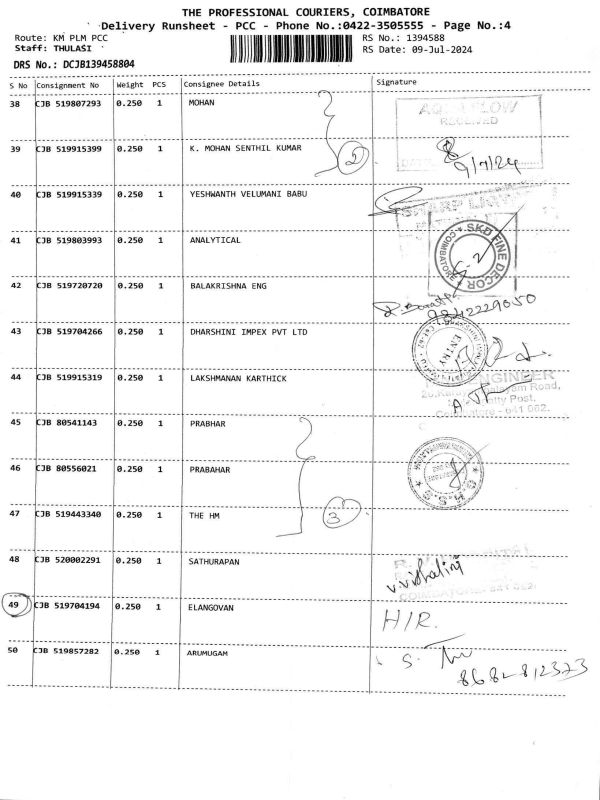 THE PROFESSIONAL COURIERS, COIMBATORE
Delivery Runsheet - PCC - Phone No.:0422-3505555 - Page No.:4
Route: KM PLM PCC
RS No.: 1394588
Staff: THULASI
RS Date: 09-Jul-2024
DRS No.: DCJB139458804
S No Consignment No Weight PCS Consignee Details Signature
38 CJB 519807293 0.250 1 MOHAN
AQUA FLOW
RECEIVED
39 CJB 519915399 0.250 1 K. MOHAN SENTHIL KUMAR
2
9/7/24
40 CJB 519915339 0.250 1 YESHWANTH VELUMANI BABU
SHARP
41 CJB 519803993 0.250 1 ANALYTICAL
SKD FINE DECOR
COIMBATORE
42 CJB 519720720 0.250 1 BALAKRISHNA ENG
9842229050
43 CJB 519704266 0.250 1 DHARSHINI IMPEX PVT LTD
ENTRY
44 CJB 519915319 0.250 1 LAKSHMANAN KARTHICK
ENGINEER
Road,
Post,
Coimbatore - 641 062.
45 CJB 80541143 0.250 1 PRABHAR
46 CJB 80556021 0.250 1 PRABAHAR
G.H.S.S
47 CJB 519443340 0.250 1 THE HM
3
48 CJB 520002291 0.250 1 SATHURAPAN
V.Vishalini
49 CJB 519704194 0.250 1 ELANGOVAN
H/R.
50 CJB 519857282 0.250 1 ARUMUGAM
S.